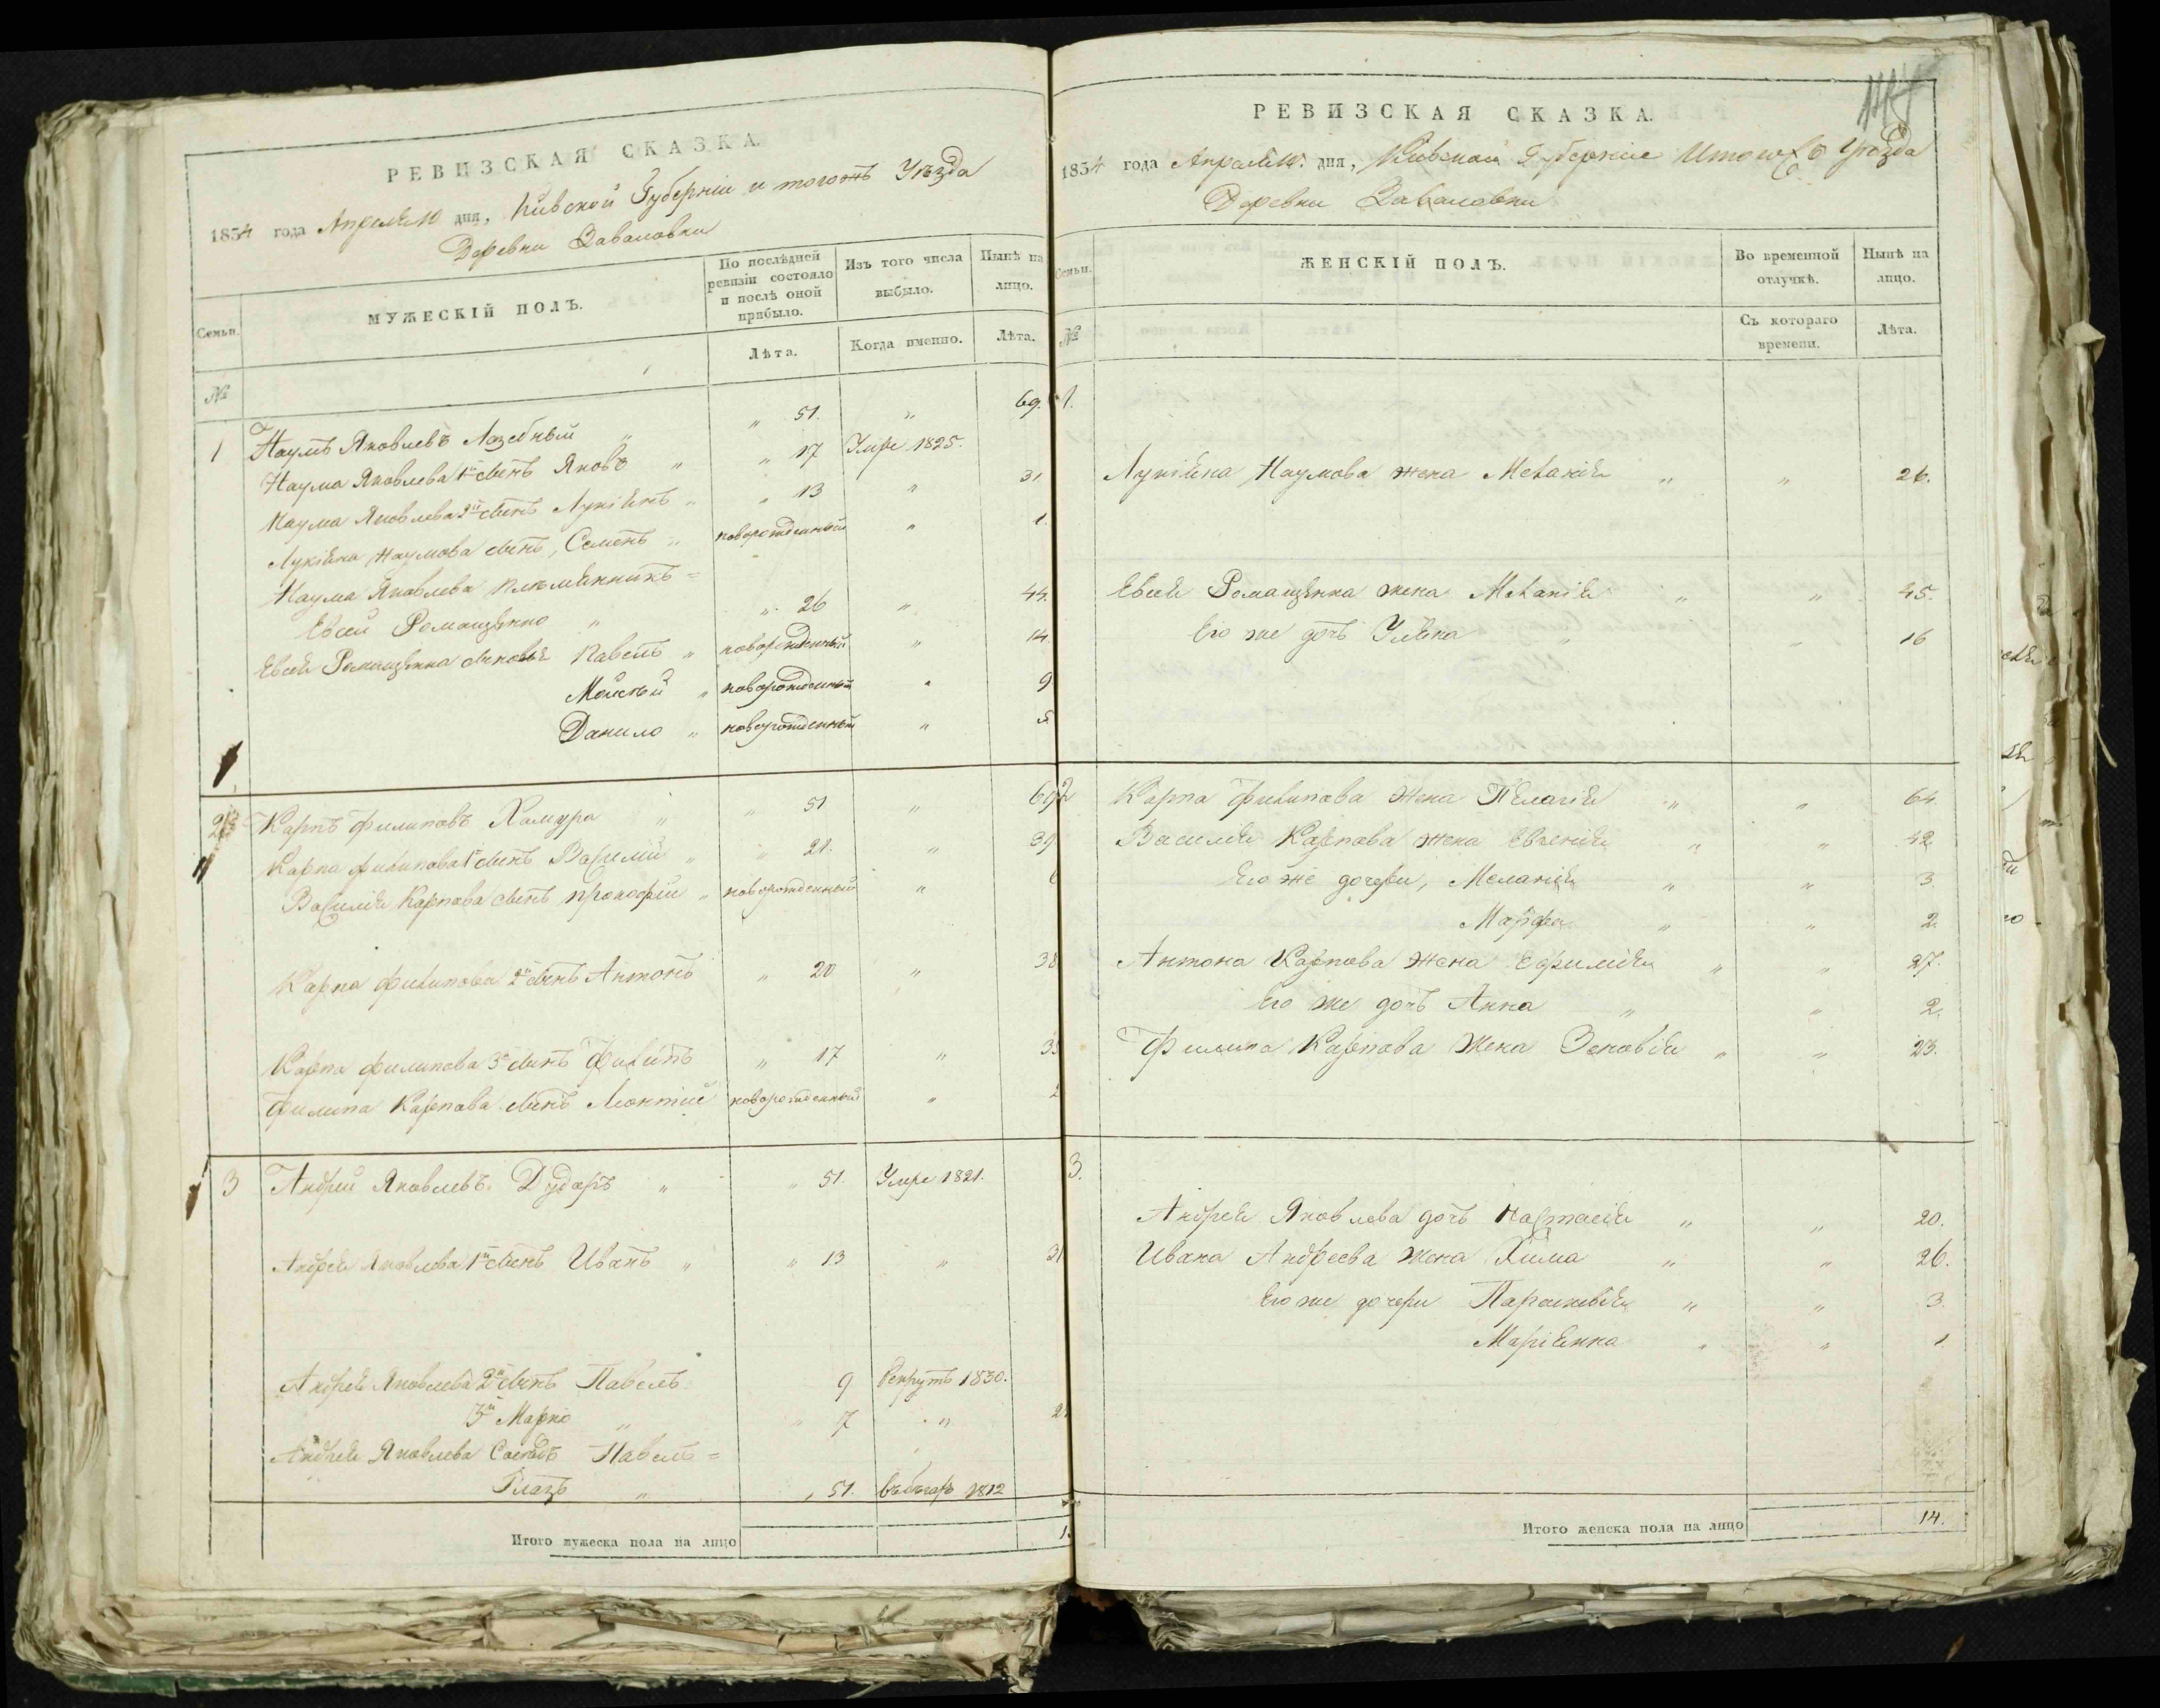 РЕВИЗСКАЯ СКАЗКА.
1834 года Апреля 10 дня, Киевской Губерніи и тогожъ Уѣзда
Деревни Заваловки
Семьи.
МУЖЕСКІЙ ПОЛЪ.
По послѣдней ревизіи состояло и послѣ оной прибыло.
Изъ того числа выбыло.
Нынѣ на лицо.
Лѣта.
Когда именно.
Лѣта.
№
1 Наумъ Яковлевъ Лазебный „ „ 51. „ 69.
Наума Яковлева 1й сынъ Яковъ „ „ 17 Умре 1825.
Наума Яковлева 2й сынъ Лукіянъ „ „ 13 „ 31
Лукіяна Наумова сынъ, Семенъ „ новорожденный „ 1.
Наума Яковлева племянникъ =
Евсей Ромащенко „ „ 26 „ 44.
Евсея Ромащенка сыновья Павелъ „ новорожденный „ 14
Мойсей „ новорожденный „ 9
Данило „ новорожденный „ 5
2 Карпъ Филиповъ Хамура „ „ 51 „ 69
Карпа Филипова 1й сынъ Василій „ „ 21. „ 39
Василія Карпова сынъ Прокофій „ новорожденный „
Карпа Филипова 2й сынъ Антонъ „ 20 „ 38
Карпа Филипова 3й сынъ Филипъ „ 17 „ 35
Филипа Карпова сынъ Леонтій новорожденный „ 2
3 Андрей Яковлевъ Дударъ „ „ 51. Умре 1821.
Андрея Яковлева 1й сынъ Иванъ „ „ 13 „ 31
Андрея Яковлева 2й сынъ Павелъ 9 Рекрутъ 1830.
3й Марко „ „ 7 „ 2
Андрея Яковлева Соседъ Павелъ =
„ „ 51. 1812
Итого мужеска пола на лицо 1
РЕВИЗСКАЯ СКАЗКА.
1834 года Апреля 10. дня, Киевской Губерніи Итогожъ Уѣзда
Деревни Заваловки
Семьи.
ЖЕНСКІЙ ПОЛЪ.
Во временной отлучкѣ.
Нынѣ на лицо.
№
Съ котораго времени.
Лѣта.
1.
Лукіяна Наумова жена Меланія „ „ 26.
Евсея Ромащенка жена Меланія „ „ 45.
Его же дочь Уляна „ „ 16
2 Карпа Филипова жена Пелагія „ „ 64
Василія Карпова жена Евгенія „ „ 42
Его же дочери, Меланія „ „ 3.
Марфа „ „ 2.
Антона Карпова жена Ефимія „ „ 27.
Его же дочь Анна „ „ 2.
Филипа Карпова жена Зеновія „ „ 23.
3.
Андрея Яковлева дочь Настасія „ „ 20.
Ивана Андреева жена Хима „ „ 26.
Его же дочери Параскевія „ „ 3.
Маріянна „ „ 1
Итого женска пола на лицо 14.